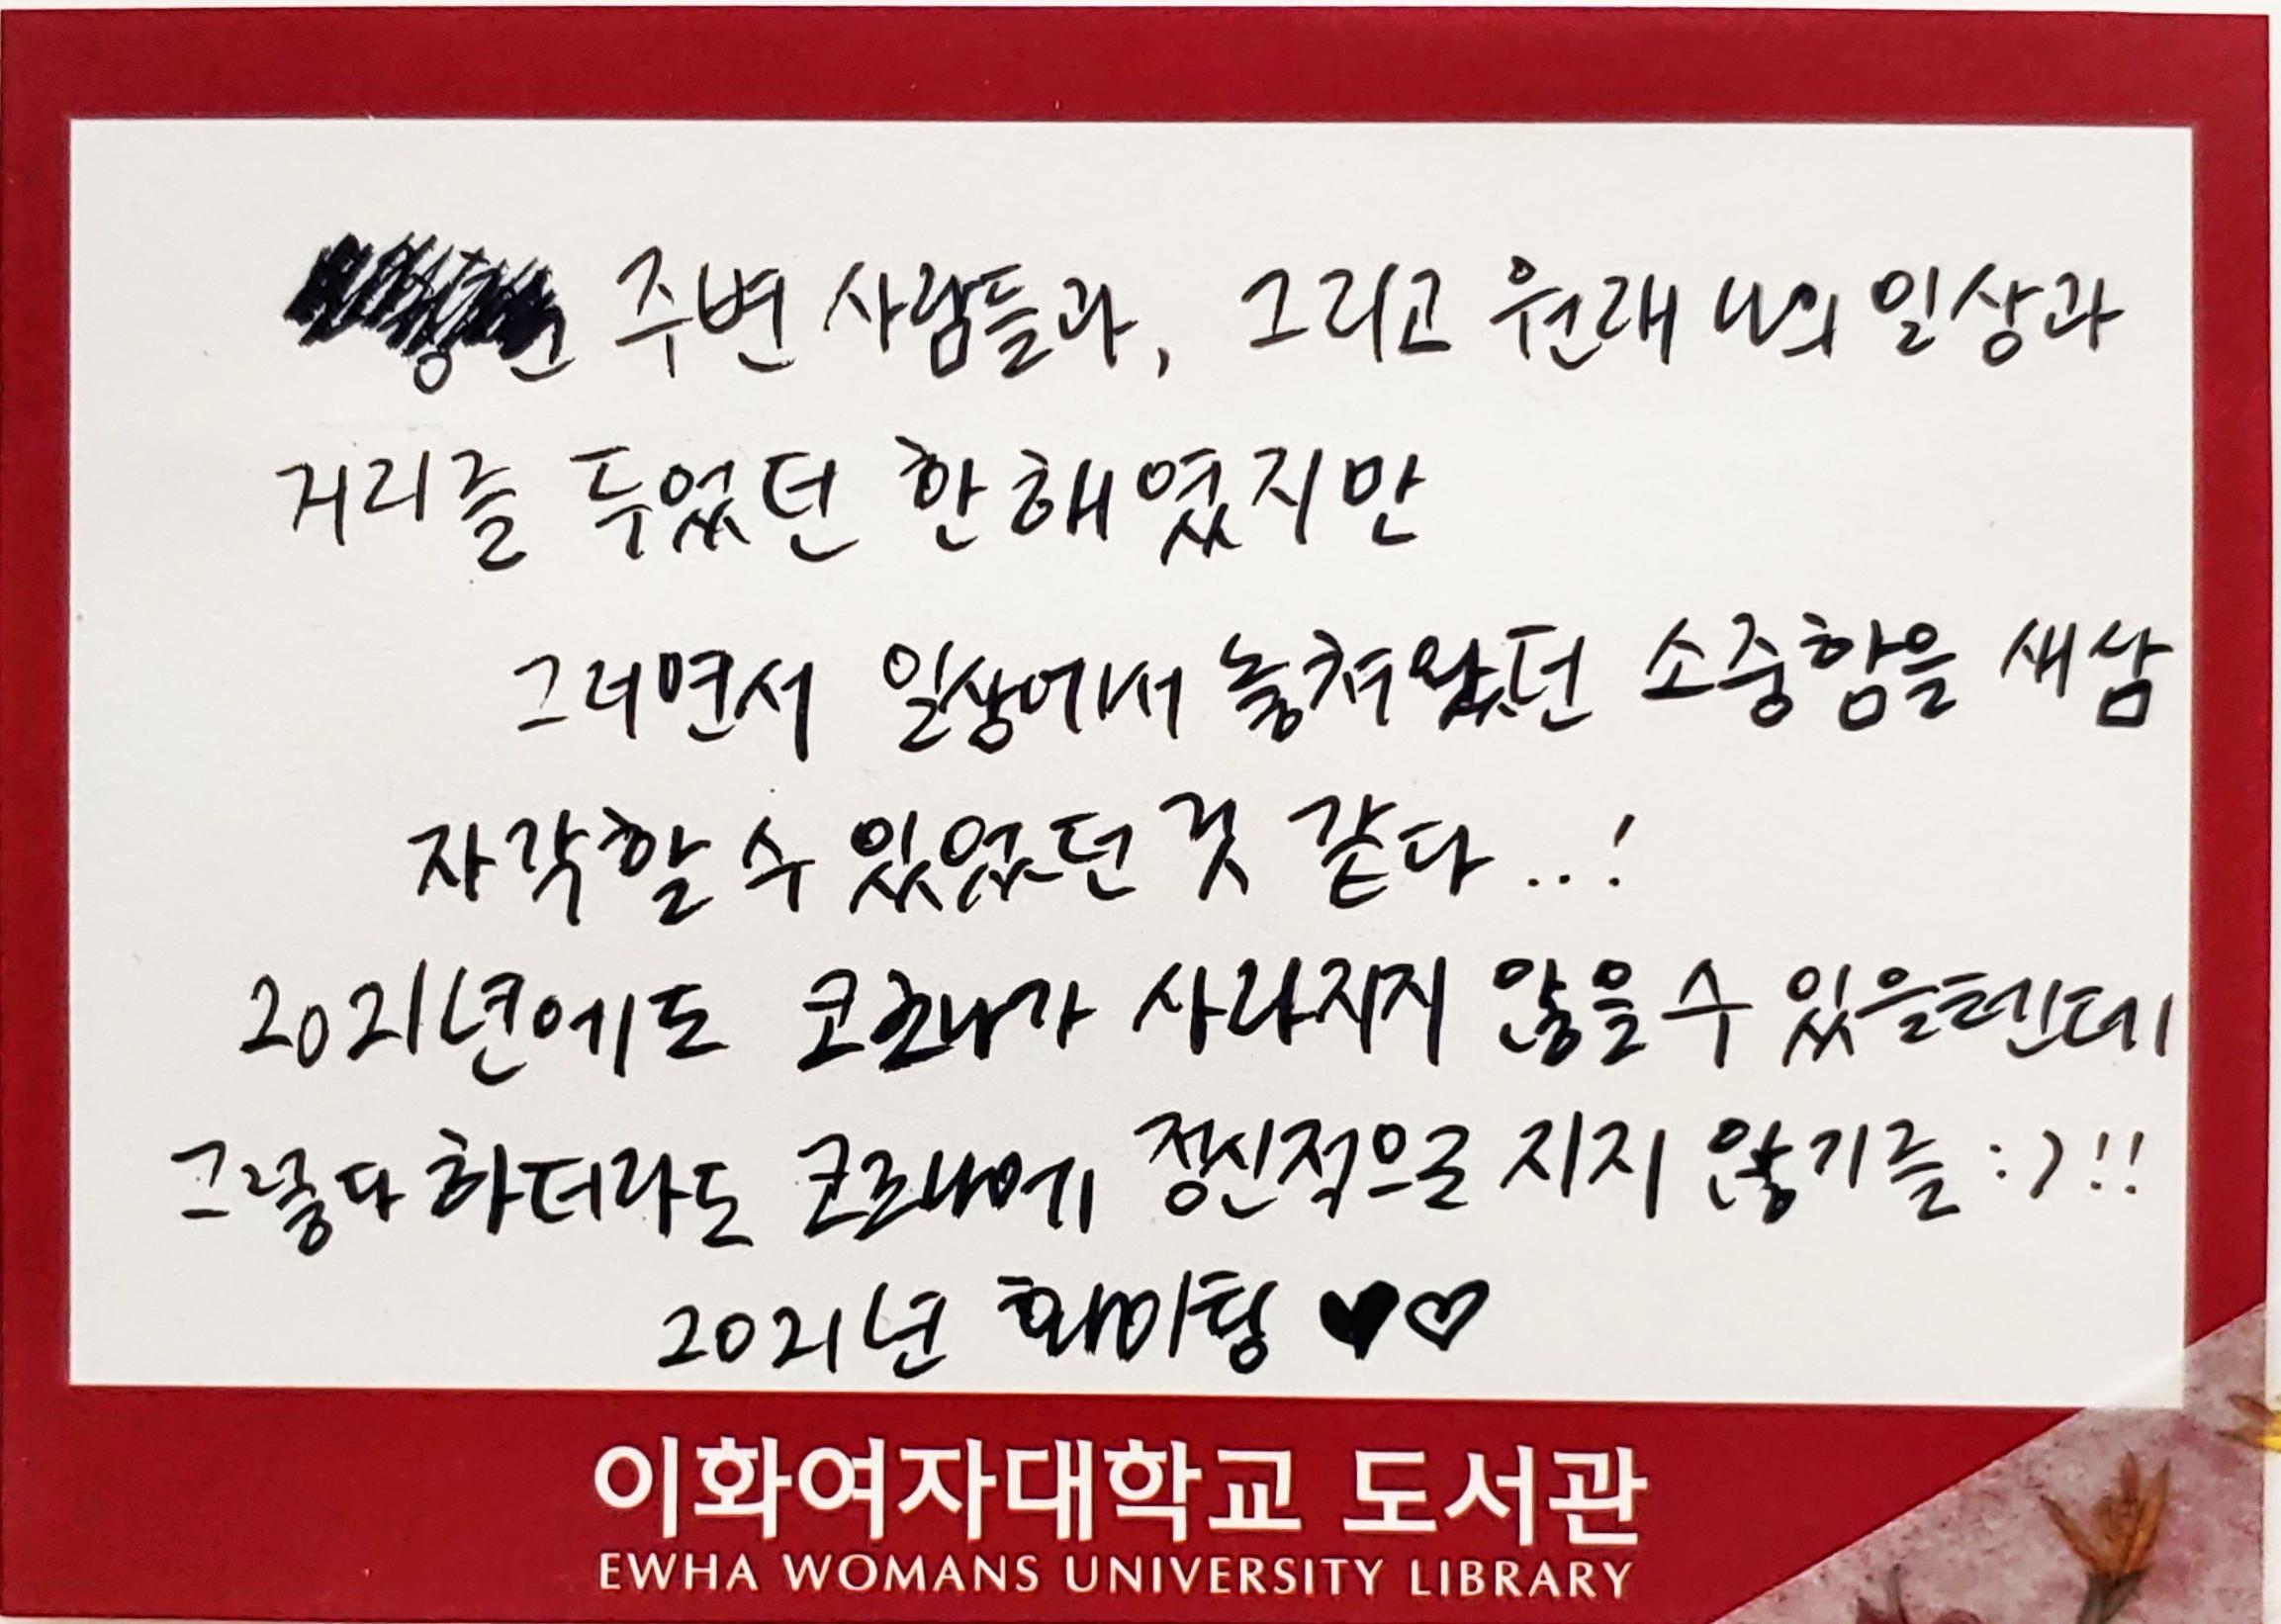 주변 사람들과, 그리고 원래 나의 일상과
거리를 두었던 한 해였지만
그러면서 일상에서 놓쳐왔던 소중함을 새삼
자각할 수 있었던 것 같다..!
2021년에도 코로나가 사라지지 않을 수 있을텐데
그렇다 하더라도 코로나에 정신적으로 지지 않기를 :)!!
2021년 화이팅 ♥♡
이화여자대학교 도서관
EWHA WOMANS UNIVERSITY LIBRARY